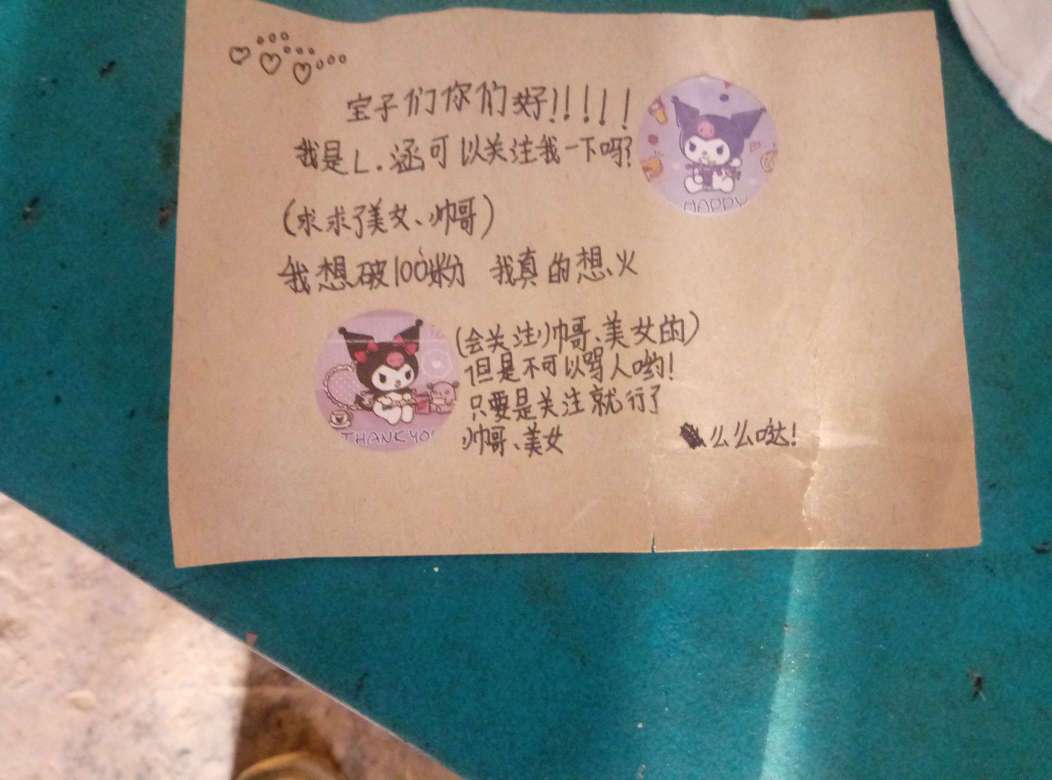 宝子们你们好!!!!!
我是L.涵可以关注我一下吗?
HAPPY
(求求了美女、帅哥)
我想破100粉 我真的想火
(会关注帅哥、美女的)
但是不可以骂人哟!
只要是关注就行了
THANK YOU
帅哥、美女 么么哒!